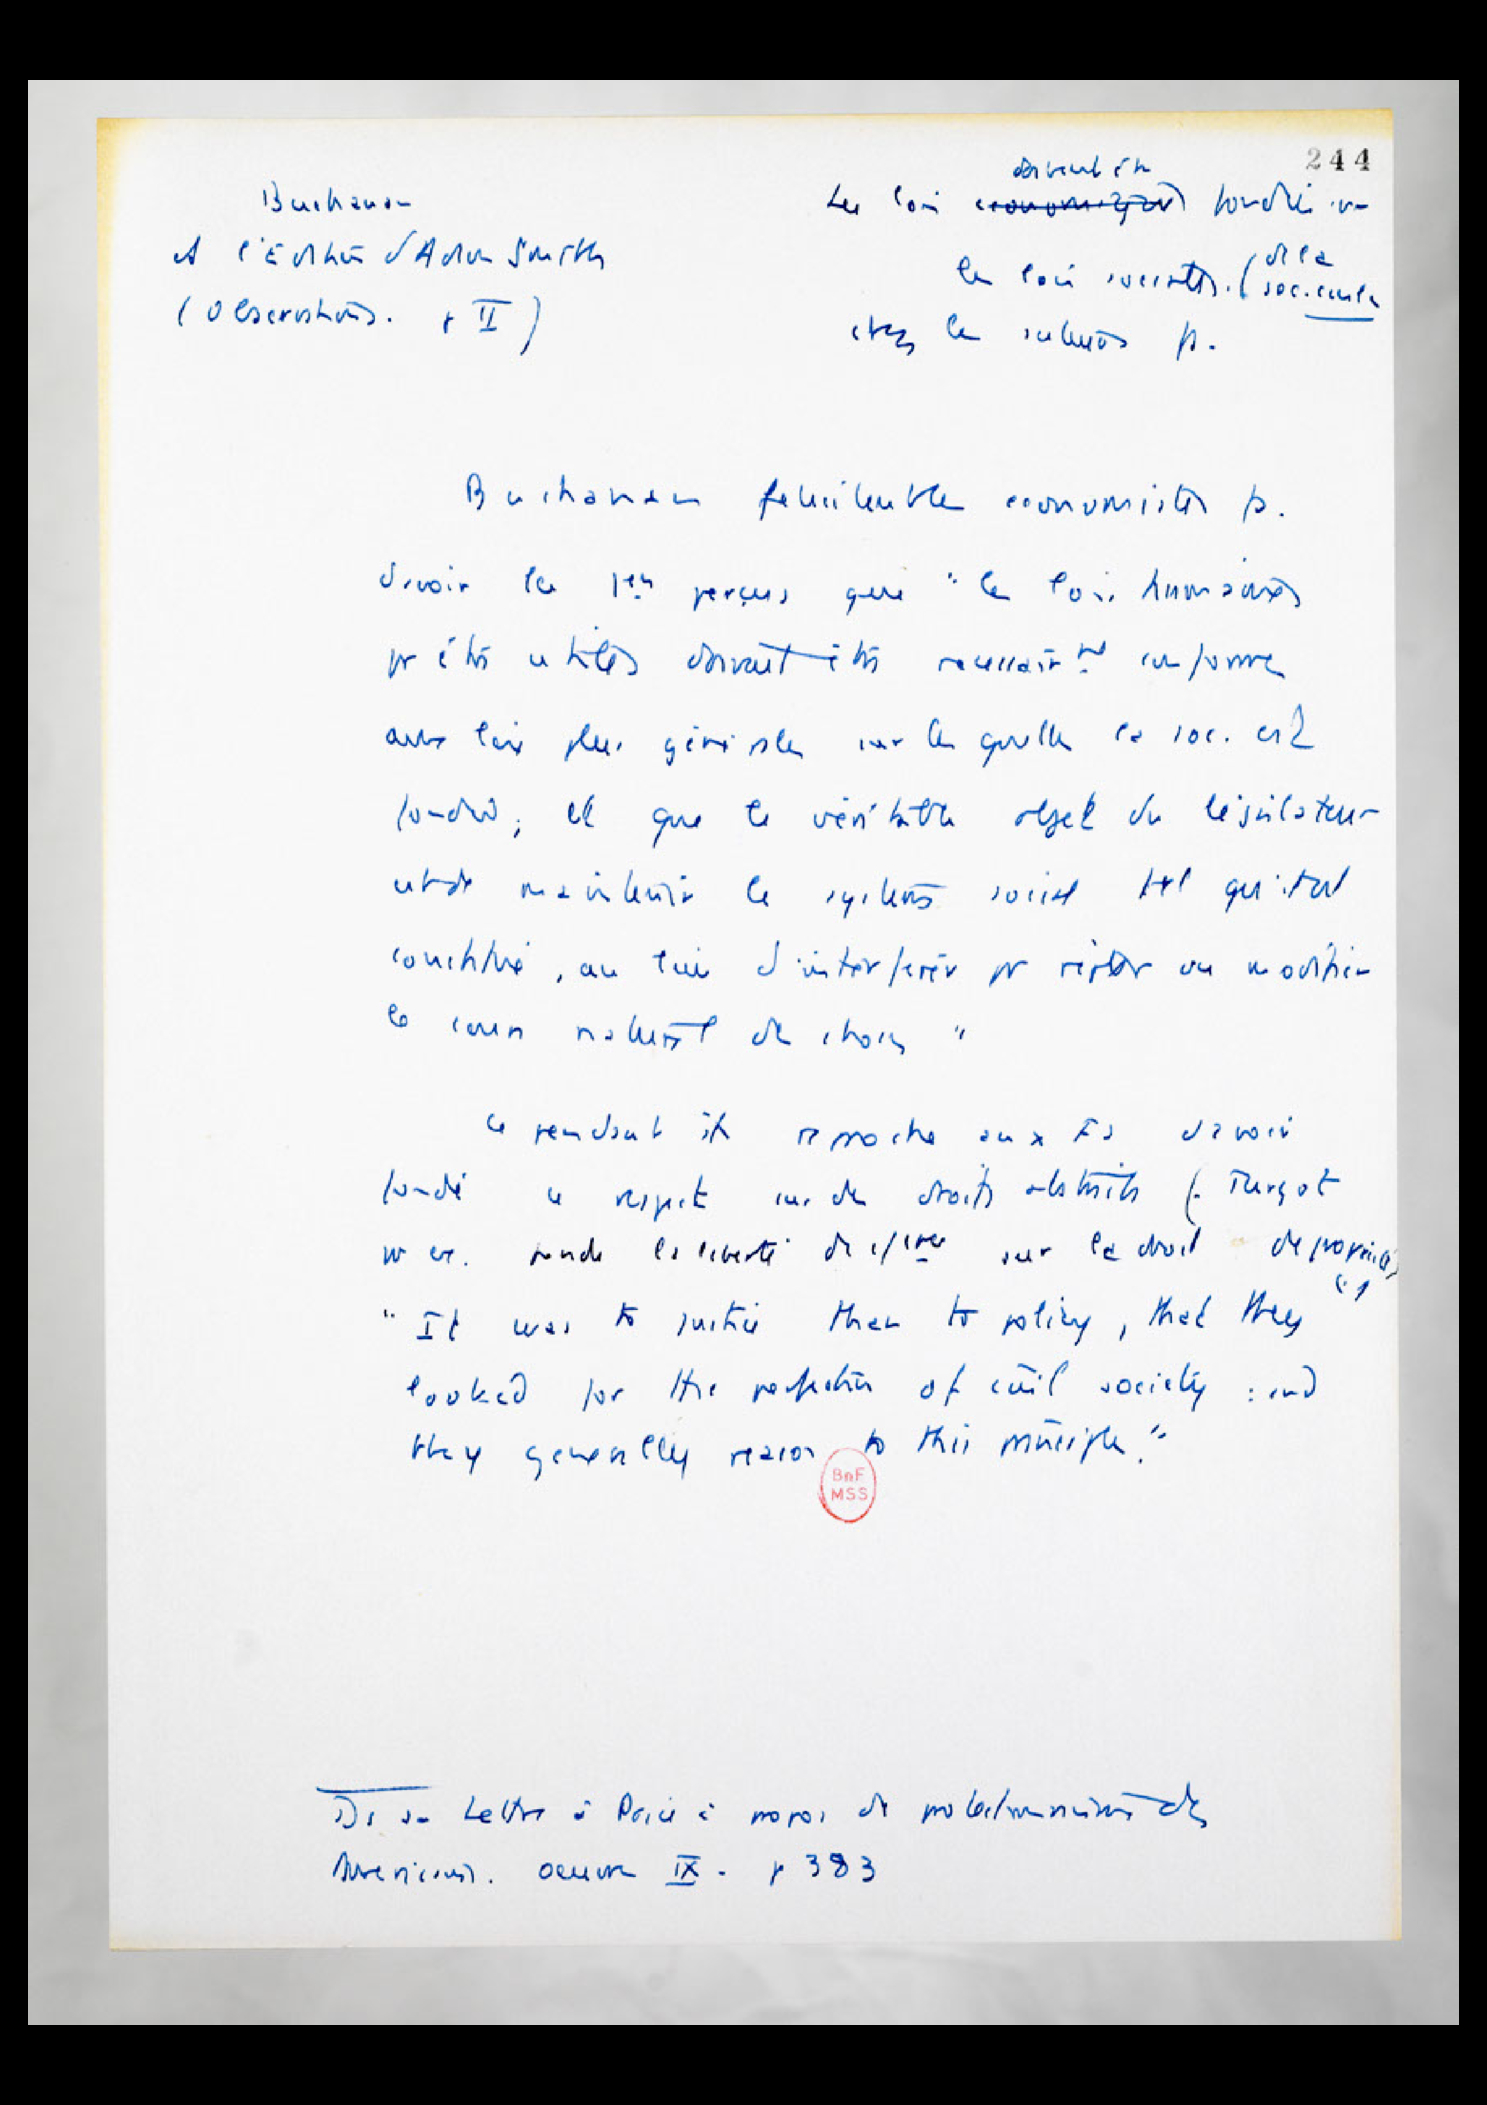 244
Buchanan
A l'Edition d'Adam Smith
(Observations. p II)
doivent être
Les lois economiques fondées sur
les lois societés. (de la
soc. civile
chez les p.
Buchanan felicite les economistes p.
d'avoir les 1ers perçus que "les lois humaines
pr être utiles doivent être necessairmt conformes
aux lois plus générales sur lesquelles la soc. est
fondée ; et que le véritable objet du législateur
est de maintenir le système social tel qu'il est
constitué, au lieu d'interférer pr régler ou modifier
le cours naturel des choses"
Cependant il reproche aux Es d'avoir
fondé ce respect sur des droits abstraits (. Turgot
pr ex. fonde la liberté du sur le droit de propriété)
(1)
"It was to justice than to policy, that they
looked for the perfection of civil society : and
they generally reason to this principle."
BnF
MSS
Ds sa Lettre à Price à propos des des
Américains. Oeuvres IX. p 383